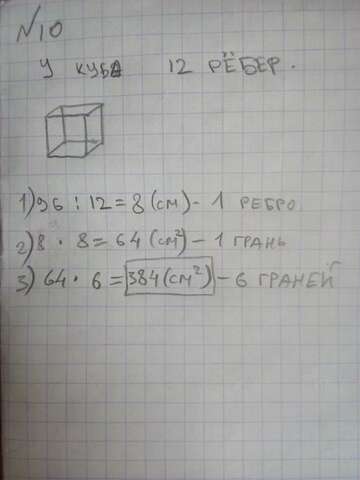 №10
У КУБА 12 РЁБЕР.
1) 96 : 12 = 8 (см) - 1 РЕБРО
2) 8 · 8 = 64 (см²) - 1 ГРАНЬ
3) 64 · 6 = 384 (см²) - 6 ГРАНЕЙ